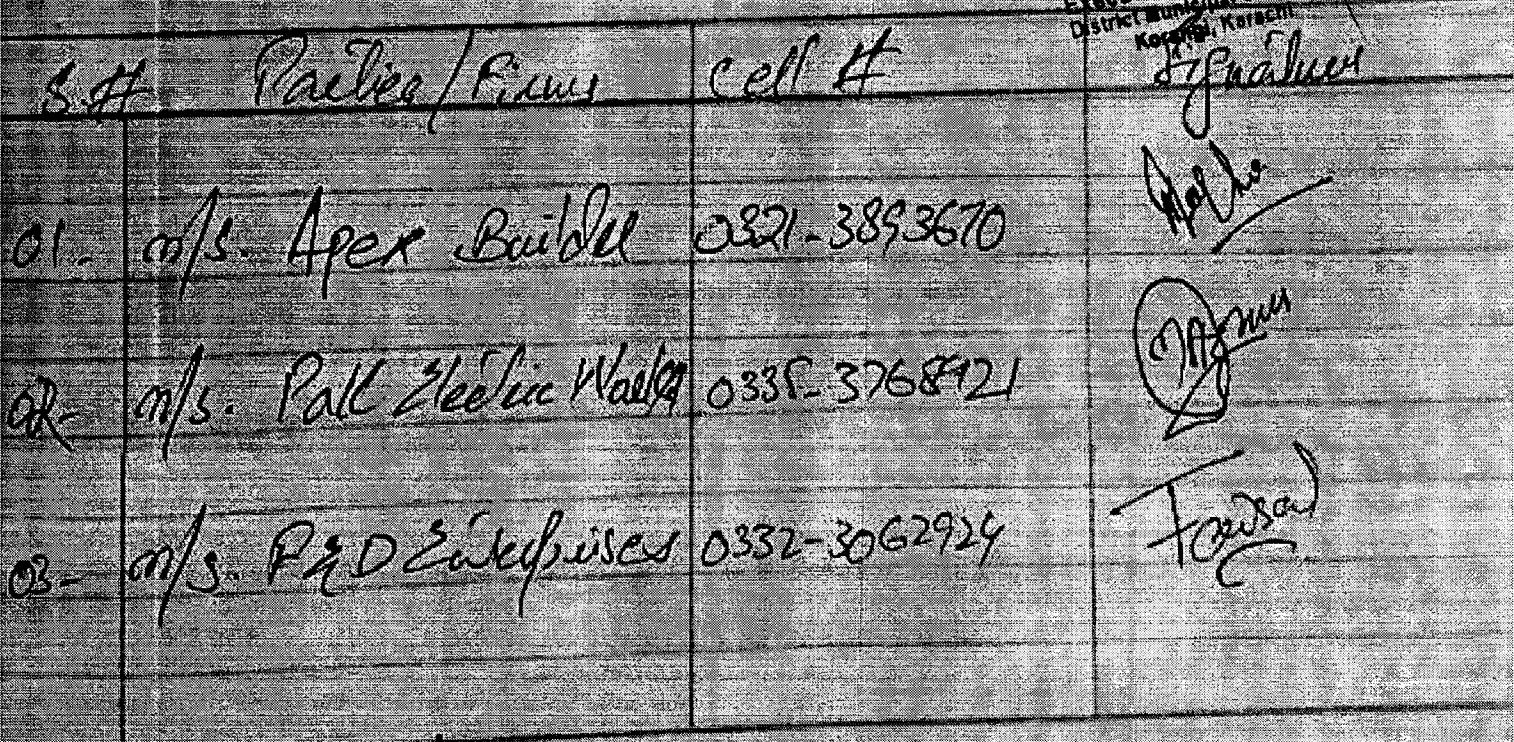 District Municipal
Korangi, Karachi
S.# Parties/Firms Cell # Signature
01- M/s. Apex Builder 0321-3893670
02- M/s. Pak Electric Works 0335-3768921
03- M/s. P&D Enterprises 0332-3062924 Faisal